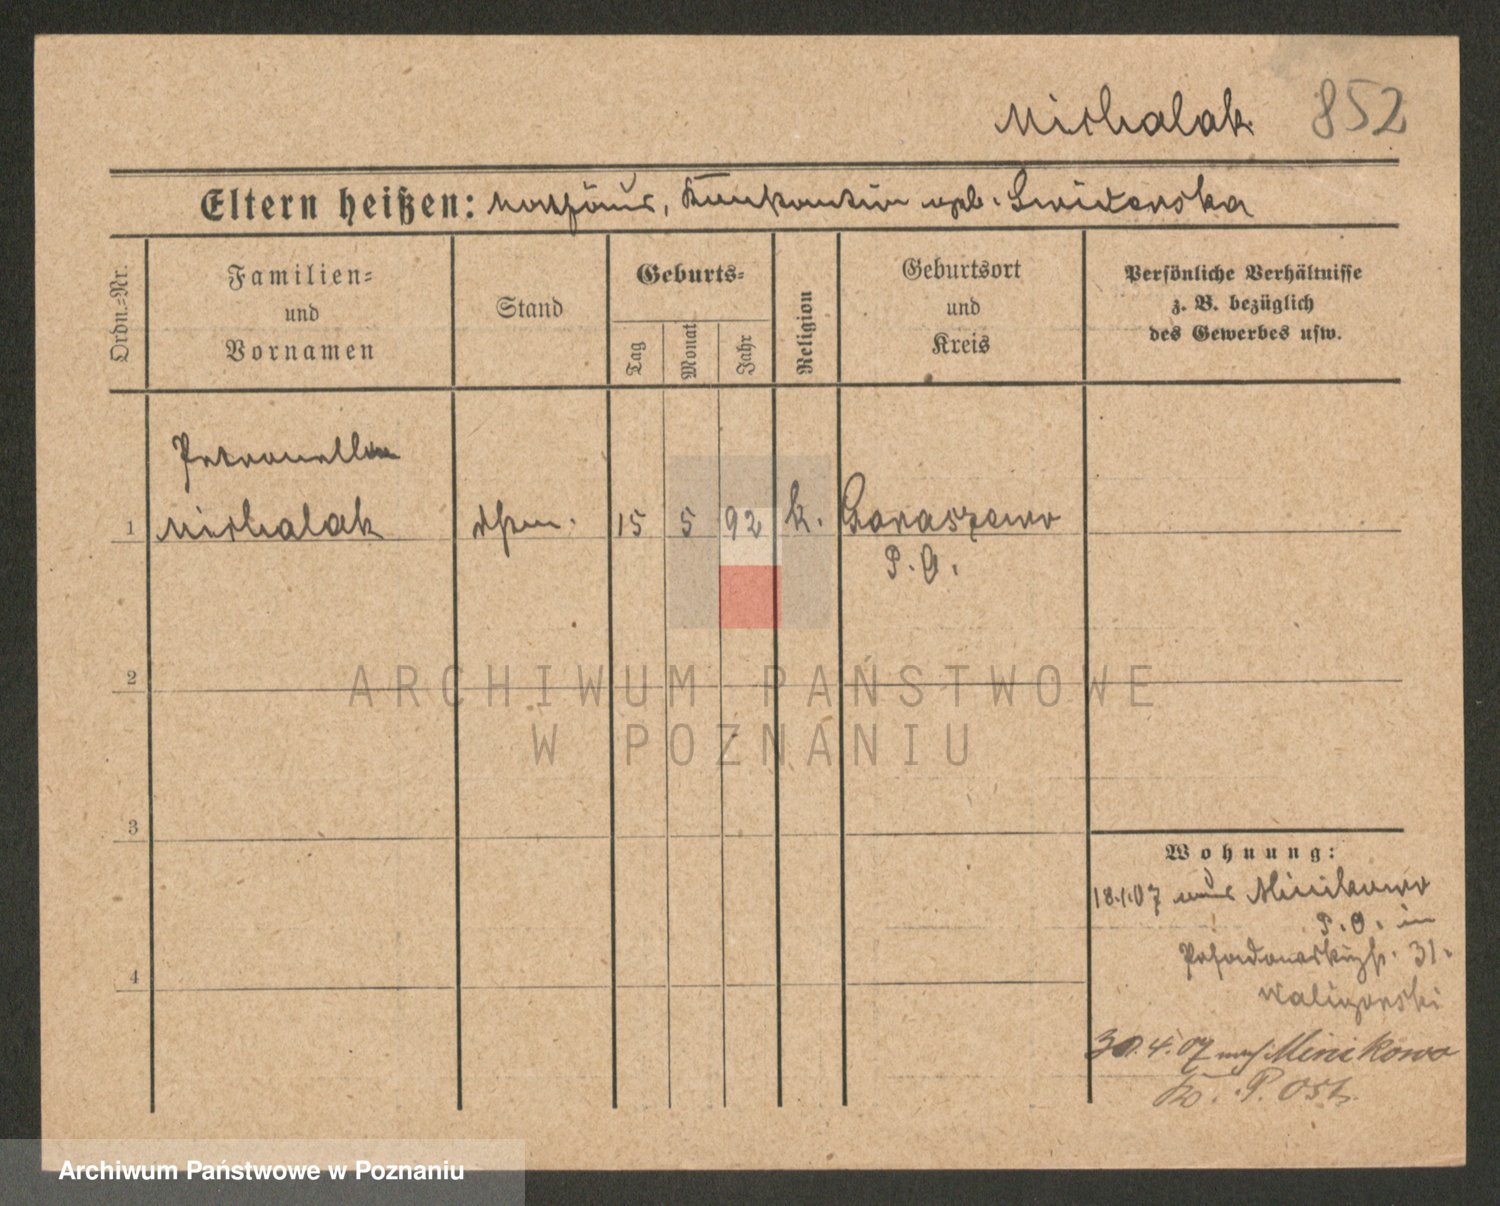 Michalak 852
Eltern heißen: Mathäus, Konstantia geb. Swiderska
Ordn.=Nr.
Familien=
und
Vornamen
Stand
Geburts=
Tag
Monat
Jahr
Religion
Geburtsort
und
Kreis
Persönliche Verhältnisse
z. B. bezüglich
des Gewerbes usw.
Petronella
1 Michalak 15 5 92 k. Garaszewo
P. O.
2
ARCHIWUM PAŃSTWOWE
W POZNANIU
3
Wohnung:
18.1.07 aus Minikowo
P. O. in
31.
Waligorski
4
30.4.07 nach Minikowo
Kr. P. Ost.
Archiwum Państwowe w Poznaniu